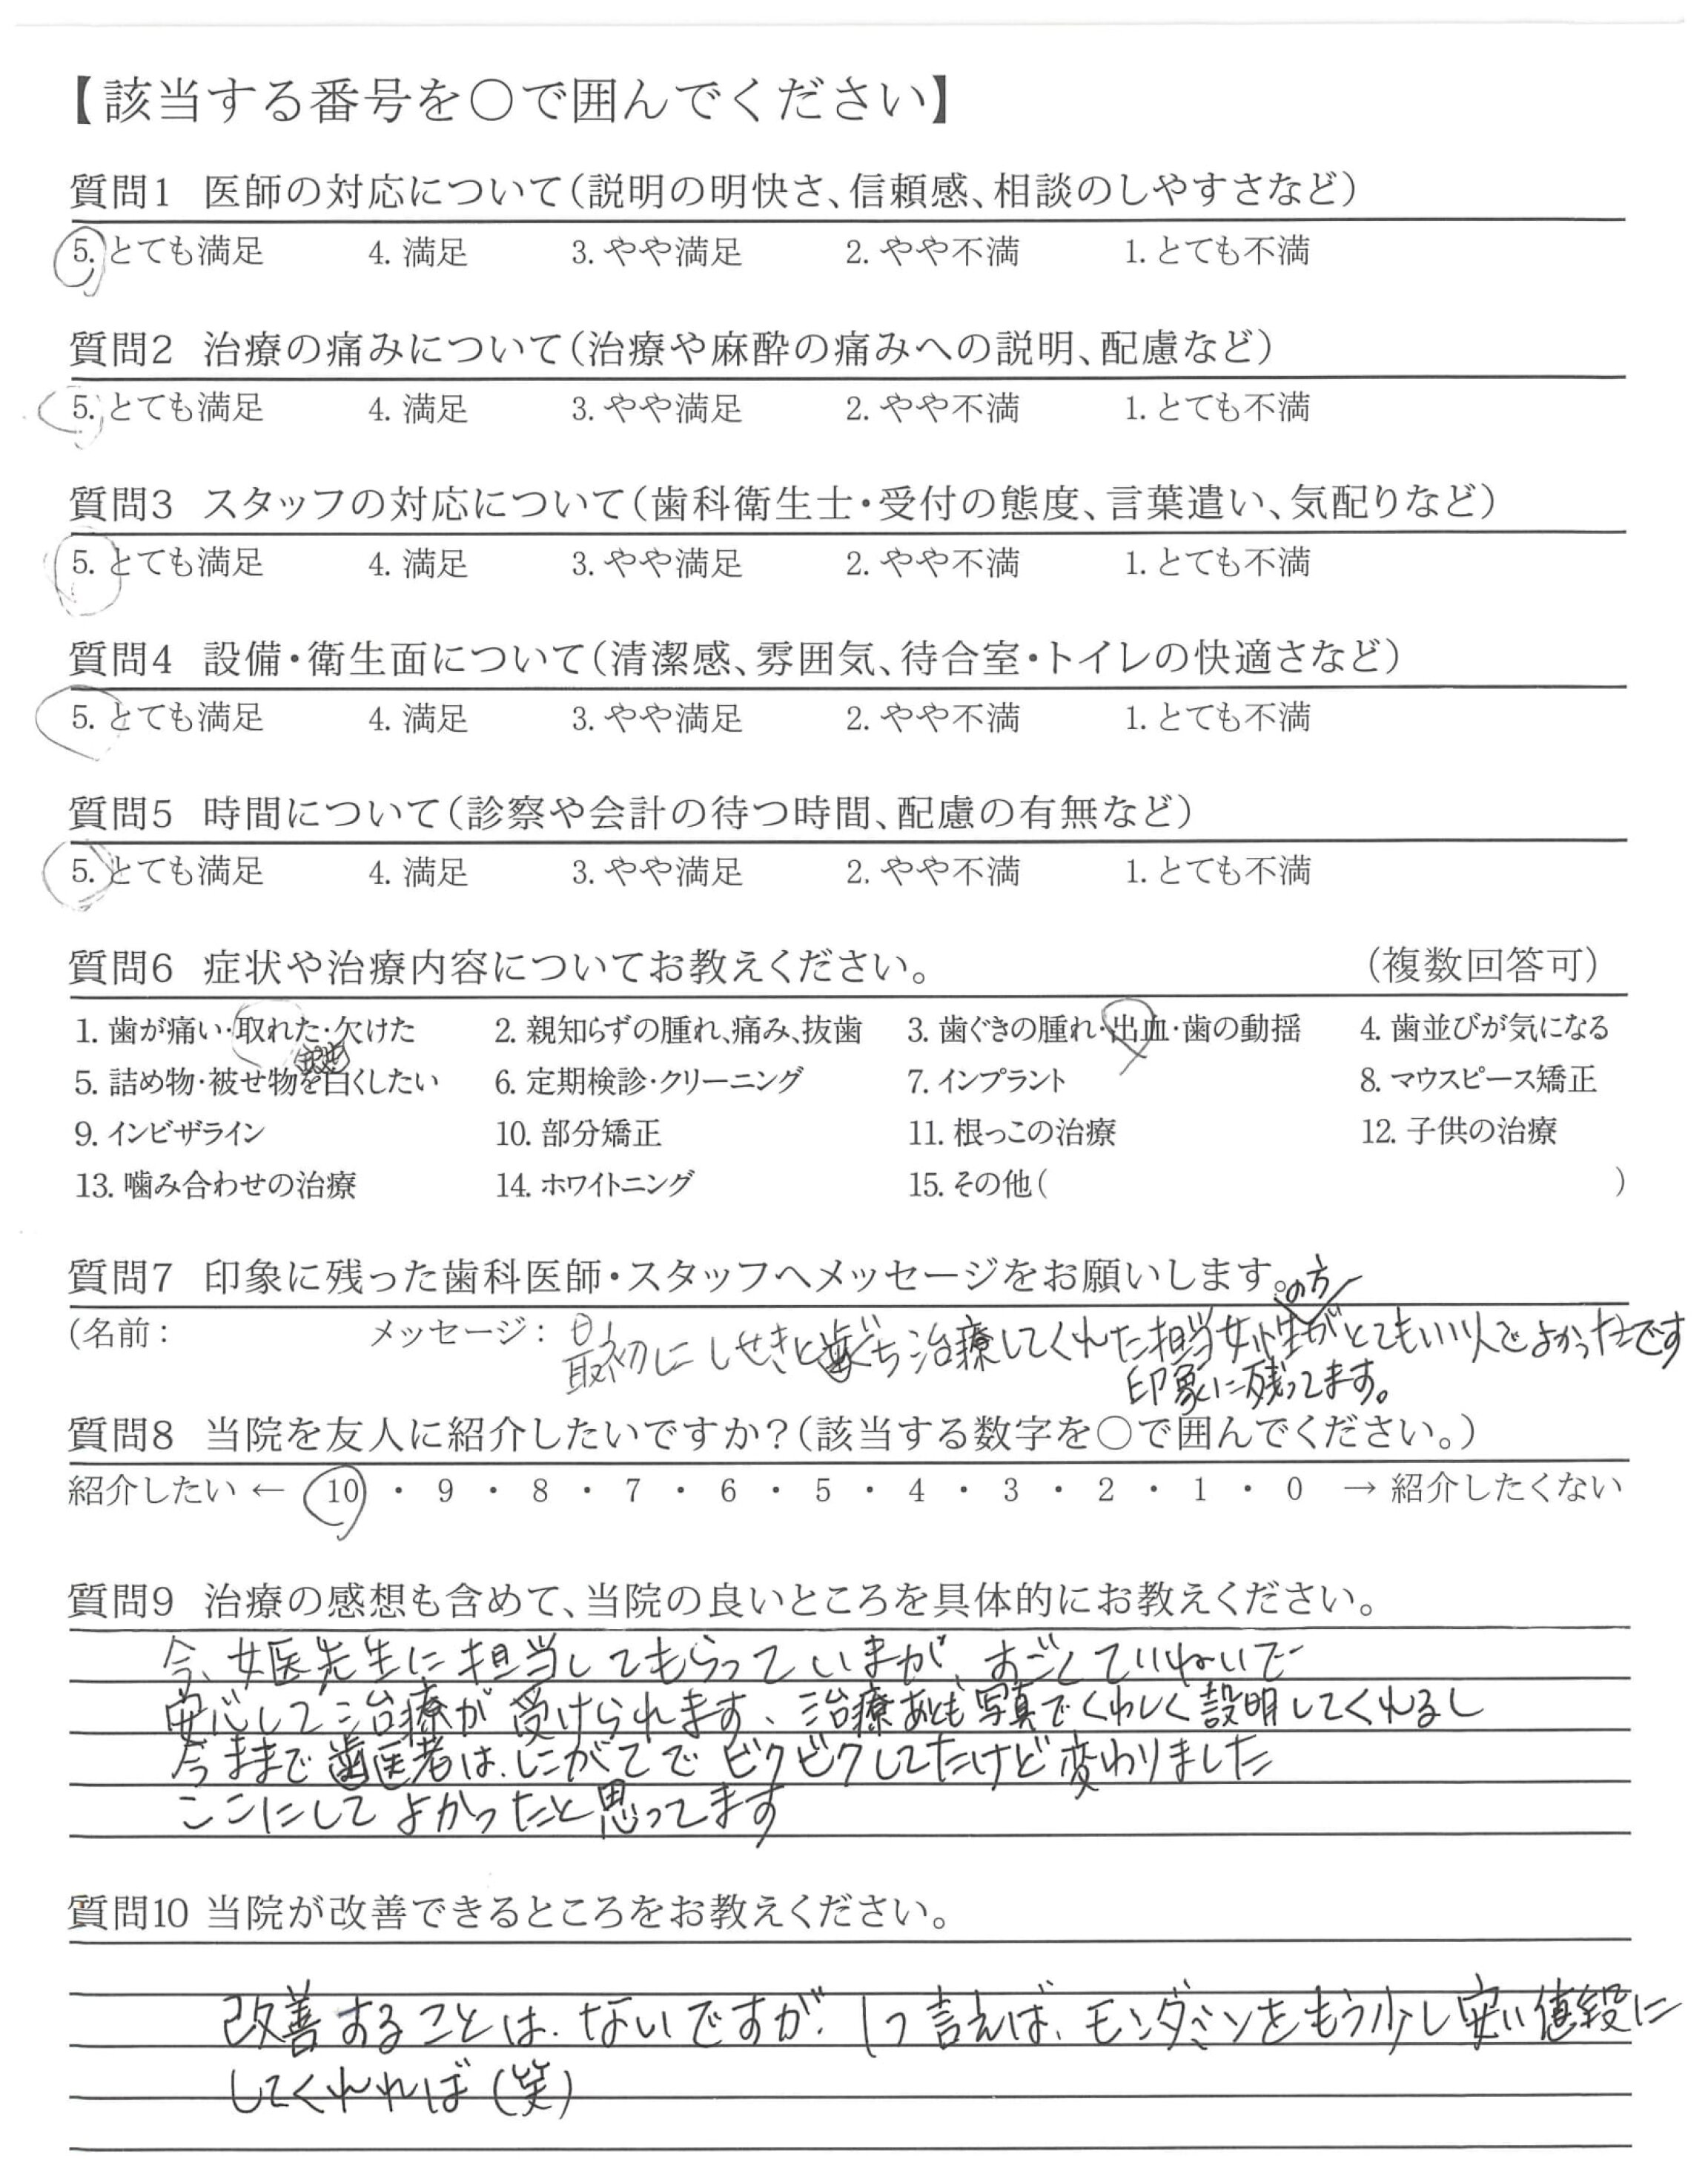 【該当する番号を○で囲んでください】
質問1 医師の対応について(説明の明快さ、信頼感、相談のしやすさなど)
5. とても満足 4. 満足 3. やや満足 2. やや不満 1. とても不満
質問2 治療の痛みについて(治療や麻酔の痛みへの説明、配慮など)
5. とても満足 4. 満足 3. やや満足 2. やや不満 1. とても不満
質問3 スタッフの対応について(歯科衛生士・受付の態度、言葉遣い、気配りなど)
5. とても満足 4. 満足 3. やや満足 2. やや不満 1. とても不満
質問4 設備・衛生面について(清潔感、雰囲気、待合室・トイレの快適さなど)
5. とても満足 4. 満足 3. やや満足 2. やや不満 1. とても不満
質問5 時間について(診察や会計の待つ時間、配慮の有無など)
5. とても満足 4. 満足 3. やや満足 2. やや不満 1. とても不満
質問6 症状や治療内容についてお教えください。 (複数回答可)
1. 歯が痛い・取れた・欠けた 2. 親知らずの腫れ、痛み、抜歯 3. 歯ぐきの腫れ・出血・歯の動揺 4. 歯並びが気になる
5. 詰め物・被せ物を白くしたい 6. 定期検診・クリーニング 7. インプラント 8. マウスピース矯正
9. インビザライン 10. 部分矯正 11. 根っこの治療 12. 子供の治療
13. 噛み合わせの治療 14. ホワイトニング 15. その他( )
質問7 印象に残った歯科医師・スタッフへメッセージをお願いします。
の方
(名前: メッセージ: 最初にしせきと治療してくれた担当女性がとてもいい人でよかったです
印象に残ってます。
質問8 当院を友人に紹介したいですか?(該当する数字を○で囲んでください。)
紹介したい ← 10 ・ 9 ・ 8 ・ 7 ・ 6 ・ 5 ・ 4 ・ 3 ・ 2 ・ 1 ・ 0 → 紹介したくない
質問9 治療の感想も含めて、当院の良いところを具体的にお教えください。
今、女医先生に担当してもらっていまが、すごくていねいで
安心して治療が受けられます、治療あとも写真でくわしく説明してくれるし
今ままで歯医者は、にがてでビクビクしてたけど変わりました
ここにしてよかったと思ってます
質問10 当院が改善できるところをお教えください。
改善することは、ないですが、1つ言えば、モンダミンをもう少し安い値段に
してくれれば(笑)